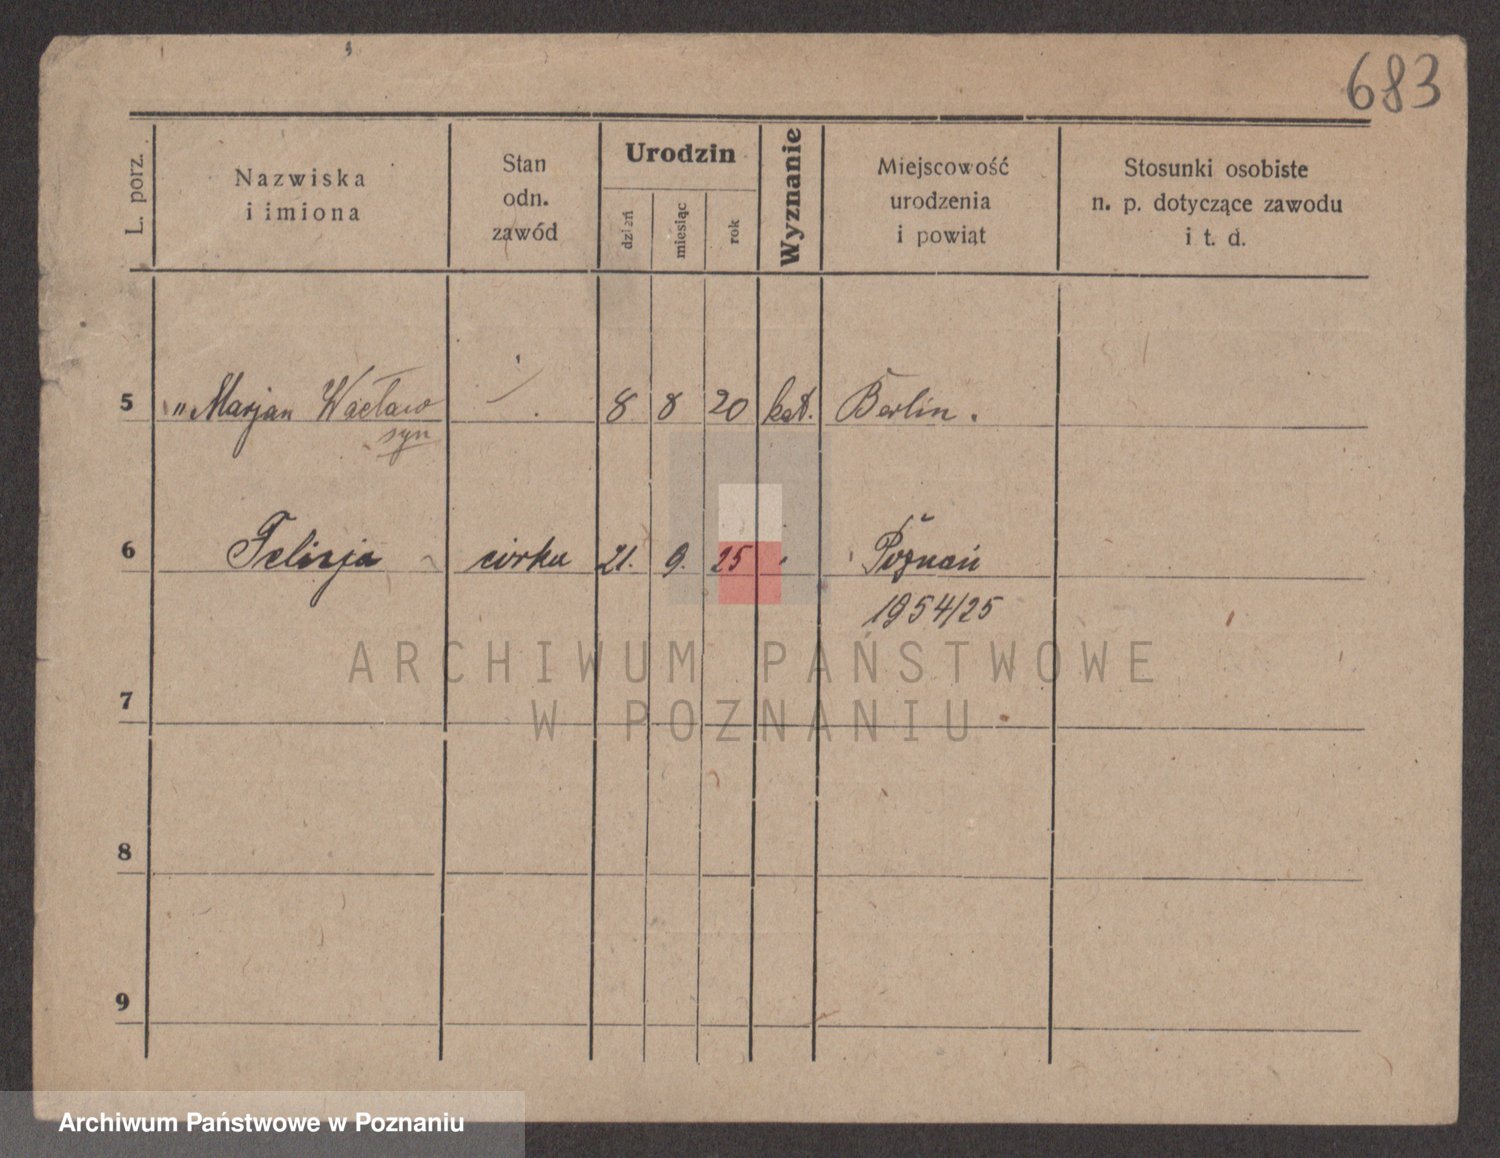 683
L. porz.
Nazwiska
i imiona
Stan
odn.
zawód
Urodzin
dzień
miesiąc
rok
Wyznanie
Miejscowość
urodzenia
i powiąt
Stosunki osobiste
n. p. dotyczące zawodu
i t. d.
5 " Marjan Wacław 8 8 20 kat. Berlin.
syn
6 Felicja córka 21. 9. 25 Poznań
1954/25
7
8
9
ARCHIWUM PAŃSTWOWE
W POZNANIU
Archiwum Państwowe w Poznaniu